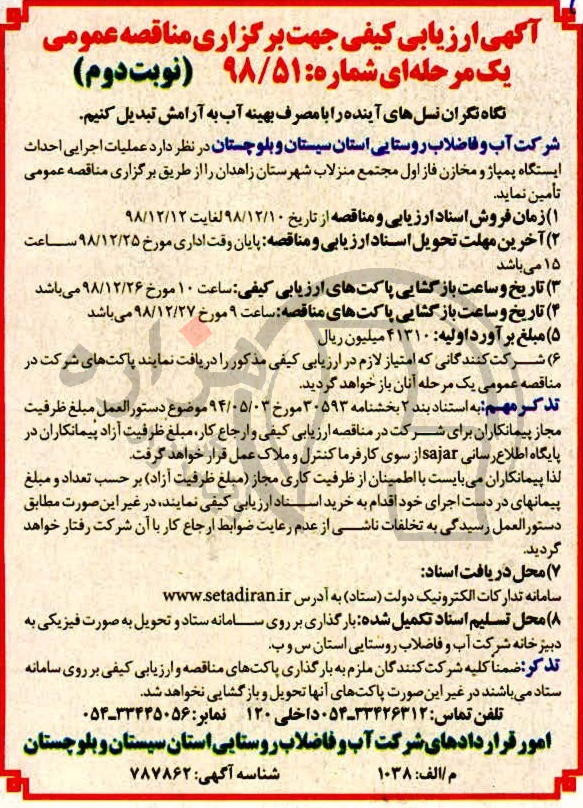 آگهی ارزیابی کیفی جهت برگزاری مناقصه عمومی
یک مرحله‌ای شماره: ۹۸/۵۱ (نوبت دوم)
نگاه نگران نسل‌های آینده را با مصرف بهینه آب به آرامش تبدیل کنیم.
شرکت آب و فاضلاب روستایی استان سیستان و بلوچستان در نظر دارد عملیات اجرایی احداث
ایستگاه پمپاژ و مخازن فاز اول مجتمع منزلاب شهرستان زاهدان را از طریق برگزاری مناقصه عمومی
تأمین نماید.
۱) زمان فروش اسناد ارزیابی و مناقصه از تاریخ ۹۸/۱۲/۱۰ لغایت ۹۸/۱۲/۱۲
۲) آخرین مهلت تحویل اسناد ارزیابی و مناقصه: پایان وقت اداری مورخ ۹۸/۱۲/۲۵ ساعت
۱۵ می‌باشد
۳) تاریخ و ساعت بازگشایی پاکت‌های ارزیابی کیفی: ساعت ۱۰ مورخ ۹۸/۱۲/۲۶ می‌باشد
۴) تاریخ و ساعت بازگشایی پاکت‌های مناقصه: ساعت ۹ مورخ ۹۸/۱۲/۲۷ می‌باشد
۵) مبلغ برآورد اولیه: ۴۱۳۱۰ میلیون ریال
۶) شرکت‌کنندگانی که امتیاز لازم در ارزیابی کیفی مذکور را دریافت نمایند پاکت‌های شرکت در
مناقصه عمومی یک مرحله آنان باز خواهد گردید.
تذکر مهم: به استناد بند ۲ بخشنامه ۳۰۵۹۳ مورخ ۹۴/۰۵/۰۳ موضوع دستورالعمل مبلغ ظرفیت
مجاز پیمانکاران برای شرکت در مناقصه ارزیابی کیفی و ارجاع کار، مبلغ ظرفیت آزاد پیمانکاران در
پایگاه اطلاع‌رسانی sajar از سوی کارفرما کنترل و ملاک عمل قرار خواهد گرفت.
لذا پیمانکاران می‌بایست با اطمینان از ظرفیت کاری مجاز (مبلغ ظرفیت آزاد) بر حسب تعداد و مبلغ
پیمانهای در دست اجرای خود اقدام به خرید اسناد ارزیابی کیفی نمایند، در غیر این صورت مطابق
دستورالعمل رسیدگی به تخلفات ناشی از عدم رعایت ضوابط ارجاع کار با آن شرکت رفتار خواهد
گردید.
۷) محل دریافت اسناد:
سامانه تدارکات الکترونیک دولت (ستاد) به آدرس www.setadiran.ir
۸) محل تسلیم اسناد تکمیل شده: بارگذاری بر روی سامانه ستاد و تحویل به صورت فیزیکی به
دبیرخانه شرکت آب و فاضلاب روستایی استان س و ب.
تذکر: ضمنا کلیه شرکت‌کنندگان ملزم به بارگذاری پاکت‌های مناقصه و ارزیابی کیفی بر روی سامانه
ستاد می‌باشند در غیر این صورت پاکت‌های آنها تحویل و بازگشایی نخواهد شد.
تلفن تماس: ۳۳۴۲۶۳۱۲-۰۵۴ داخلی ۱۲۰ نمابر: ۳۳۴۴۵۰۵۶-۰۵۴
امور قراردادهای شرکت آب و فاضلاب روستایی استان سیستان و بلوچستان
م/الف: ۱۰۳۸ شناسه آگهی: ۷۸۷۸۶۲
هزاره